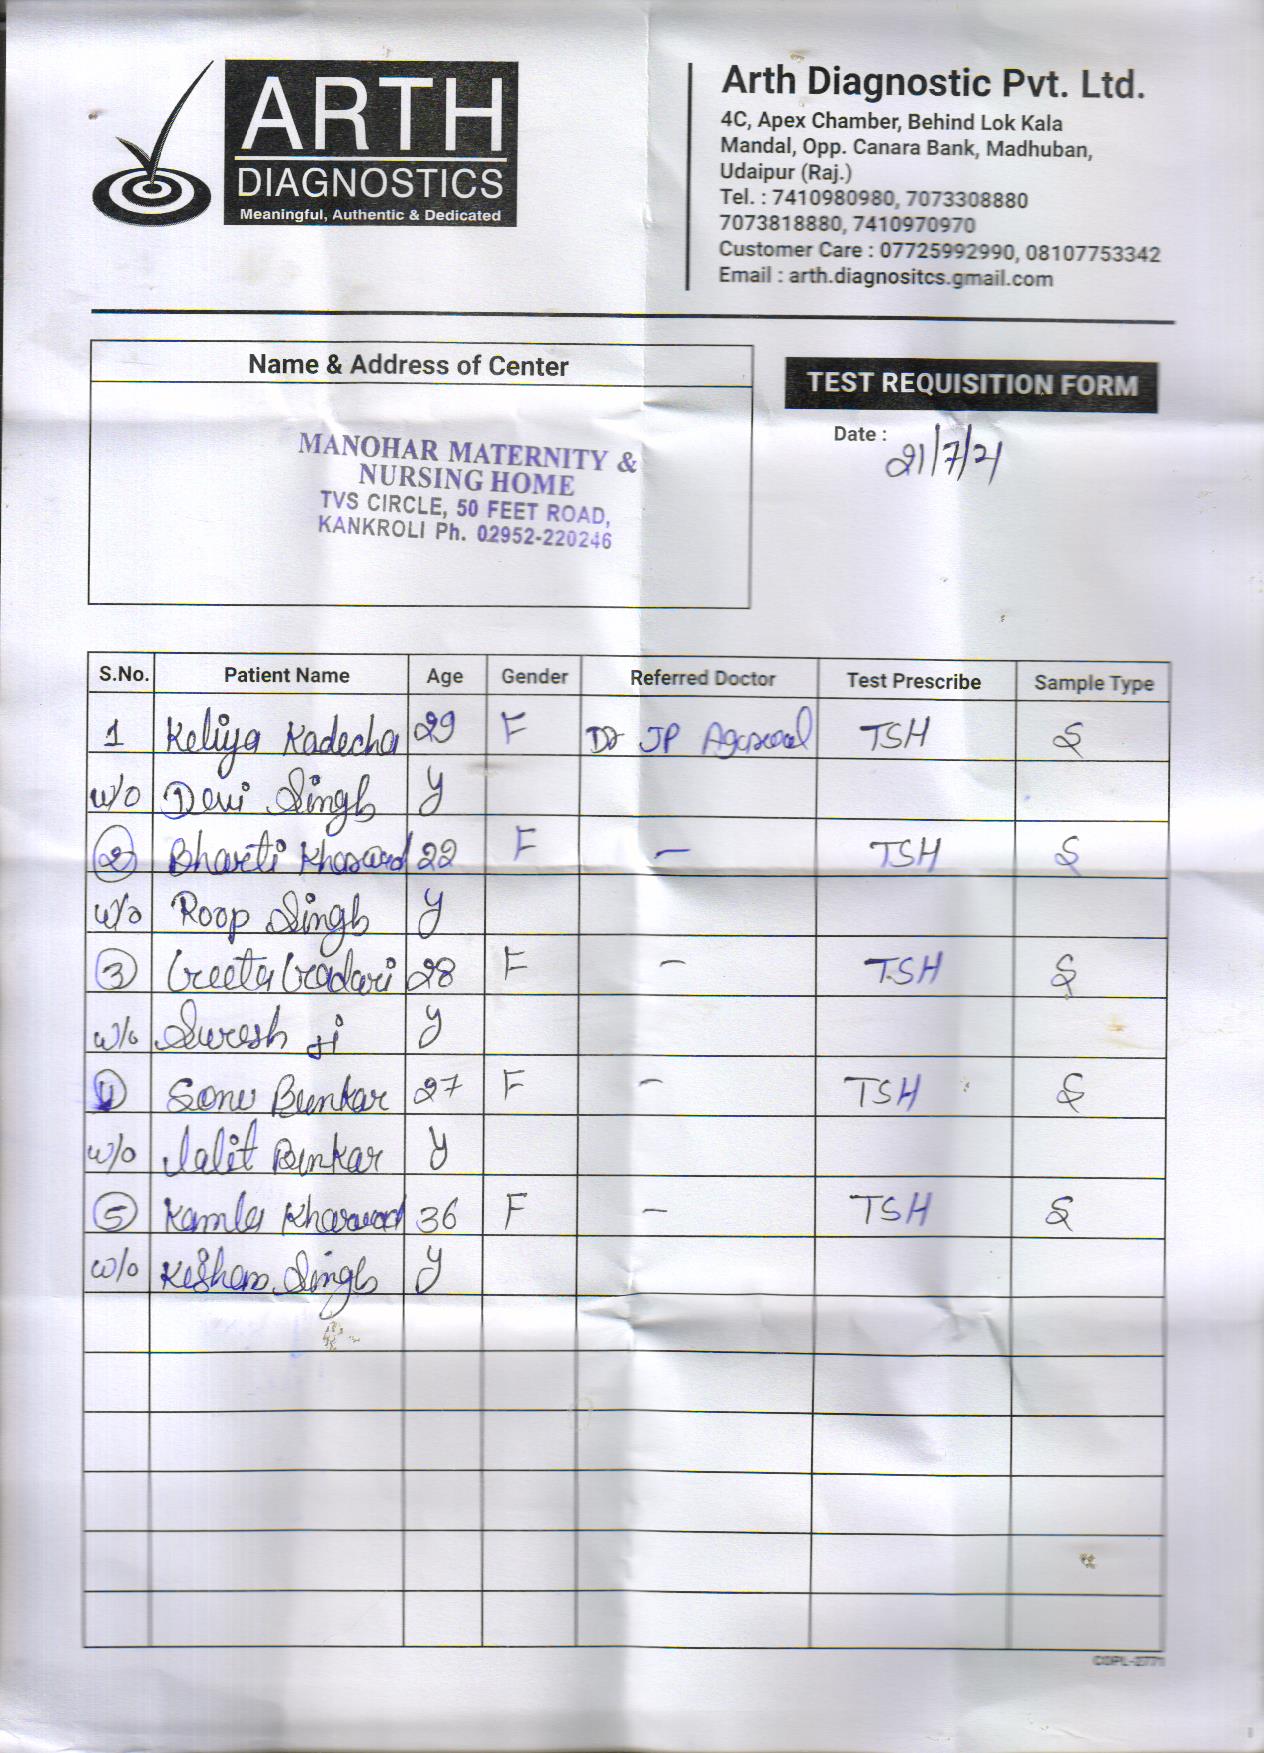 ARTH
DIAGNOSTICS
Meaningful, Authentic & Dedicated
Arth Diagnostic Pvt. Ltd.
4C, Apex Chamber, Behind Lok Kala
Mandal, Opp. Canara Bank, Madhuban,
Udaipur (Raj.)
Tel. : 7410980980, 7073308880
7073818880, 7410970970
Customer Care : 07725992990, 08107753342
Email : arth.diagnositcs.gmail.com
Name & Address of Center
MANOHAR MATERNITY &
NURSING HOME
TVS CIRCLE, 50 FEET ROAD,
KANKROLI Ph. 02952-220246
TEST REQUISITION FORM
Date : 21/7/21
S.No. Patient Name Age Gender Referred Doctor Test Prescribe Sample Type
1 Keliya Kadecha 29 F Dr JP Agarwal TSH S
w/o Devi Singh y
2 Bharti Kharwad 22 F — TSH S
w/o Roop Singh y
3 Geeta 28 F — TSH S
w/o Suresh ji y
4 Sonu Bunkar 27 F — TSH S
w/o Lalit Bunkar y
5 Kamla Kharwad 36 F — TSH S
w/o Singh y
COPL-2771